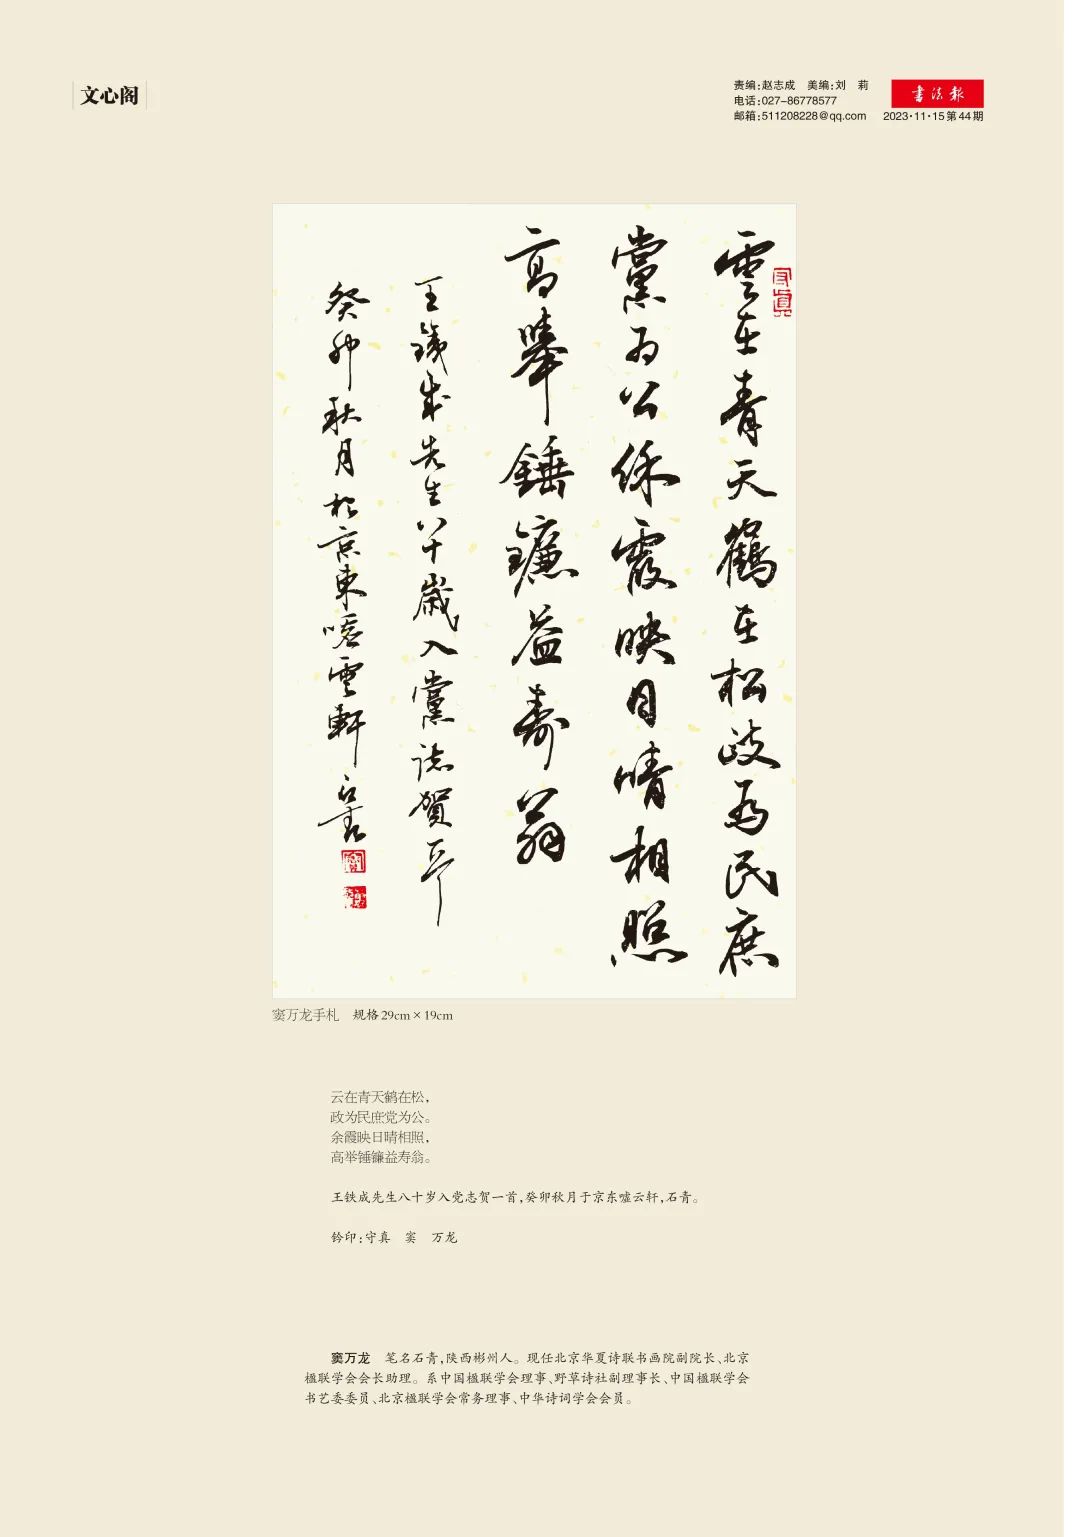 文心阁
责编：赵志成　美编：刘　莉
电话：027-86778577
邮箱：511208228@qq.com
書法報
2023·11·15第44期
守真
雲在青天鶴在松政為民庶
黨為公余霞映日晴相照
高舉錘鐮益壽翁
王鐵成先生八十歲入黨誌賀一首
癸卯秋月於京東噓雲軒石青
竇万龙手札　规格29cm×19cm
云在青天鹤在松，
政为民庶党为公。
余霞映日晴相照，
高举锤镰益寿翁。
王铁成先生八十岁入党志贺一首，癸卯秋月于京东嘘云轩，石青。
钤印：守真　窦　万龙
窦万龙　笔名石青，陕西彬州人。现任北京华夏诗联书画院副院长、北京
楹联学会会长助理。系中国楹联学会理事、野草诗社副理事长、中国楹联学会
书艺委委员、北京楹联学会常务理事、中华诗词学会会员。